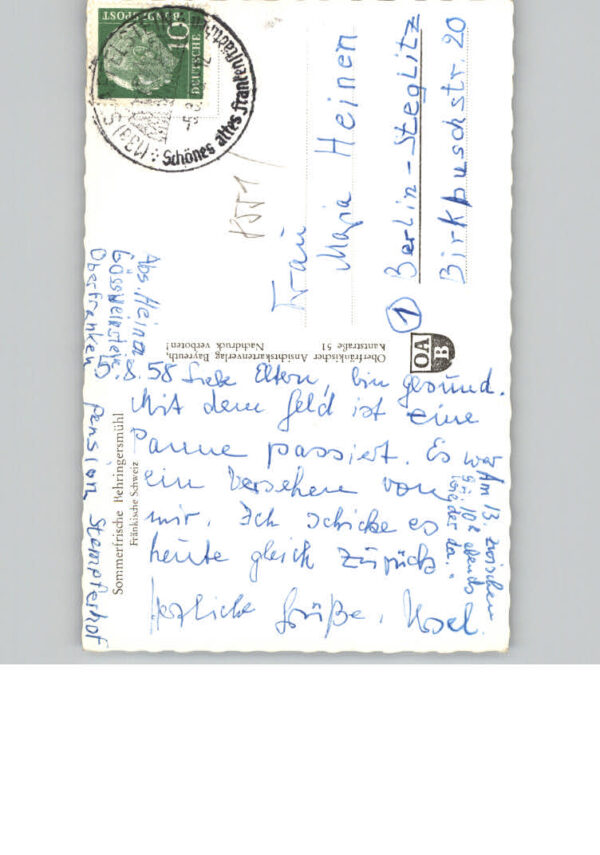 5.8.58 Liebe Eltern, bin gesund.
Mit dem Geld ist eine
Panne passiert. Es war
ein Versehen von
mir. Ich schicke es
heute gleich zurück
Herzliche Grüße, Ursel.
Am 13. zwischen
9 u. 10h abends
wieder da.
Abs. Heinen
Gössweinstein
Oberfranken
Pension Stempferhof
Sommerfrische Behringersmühl
Fränkische Schweiz
Oberfränkischer Ansichtskartenverlag Bayreuth,
Kantstraße 51
Nachdruck verboten!
OA
B
Frau
Maria Heinen
1 Berlin-Steglitz
Birkbuschstr. 20
10
DEUTSCHE
BUNDESPOST
(13a)
Schönes altes Frankenstädtchen